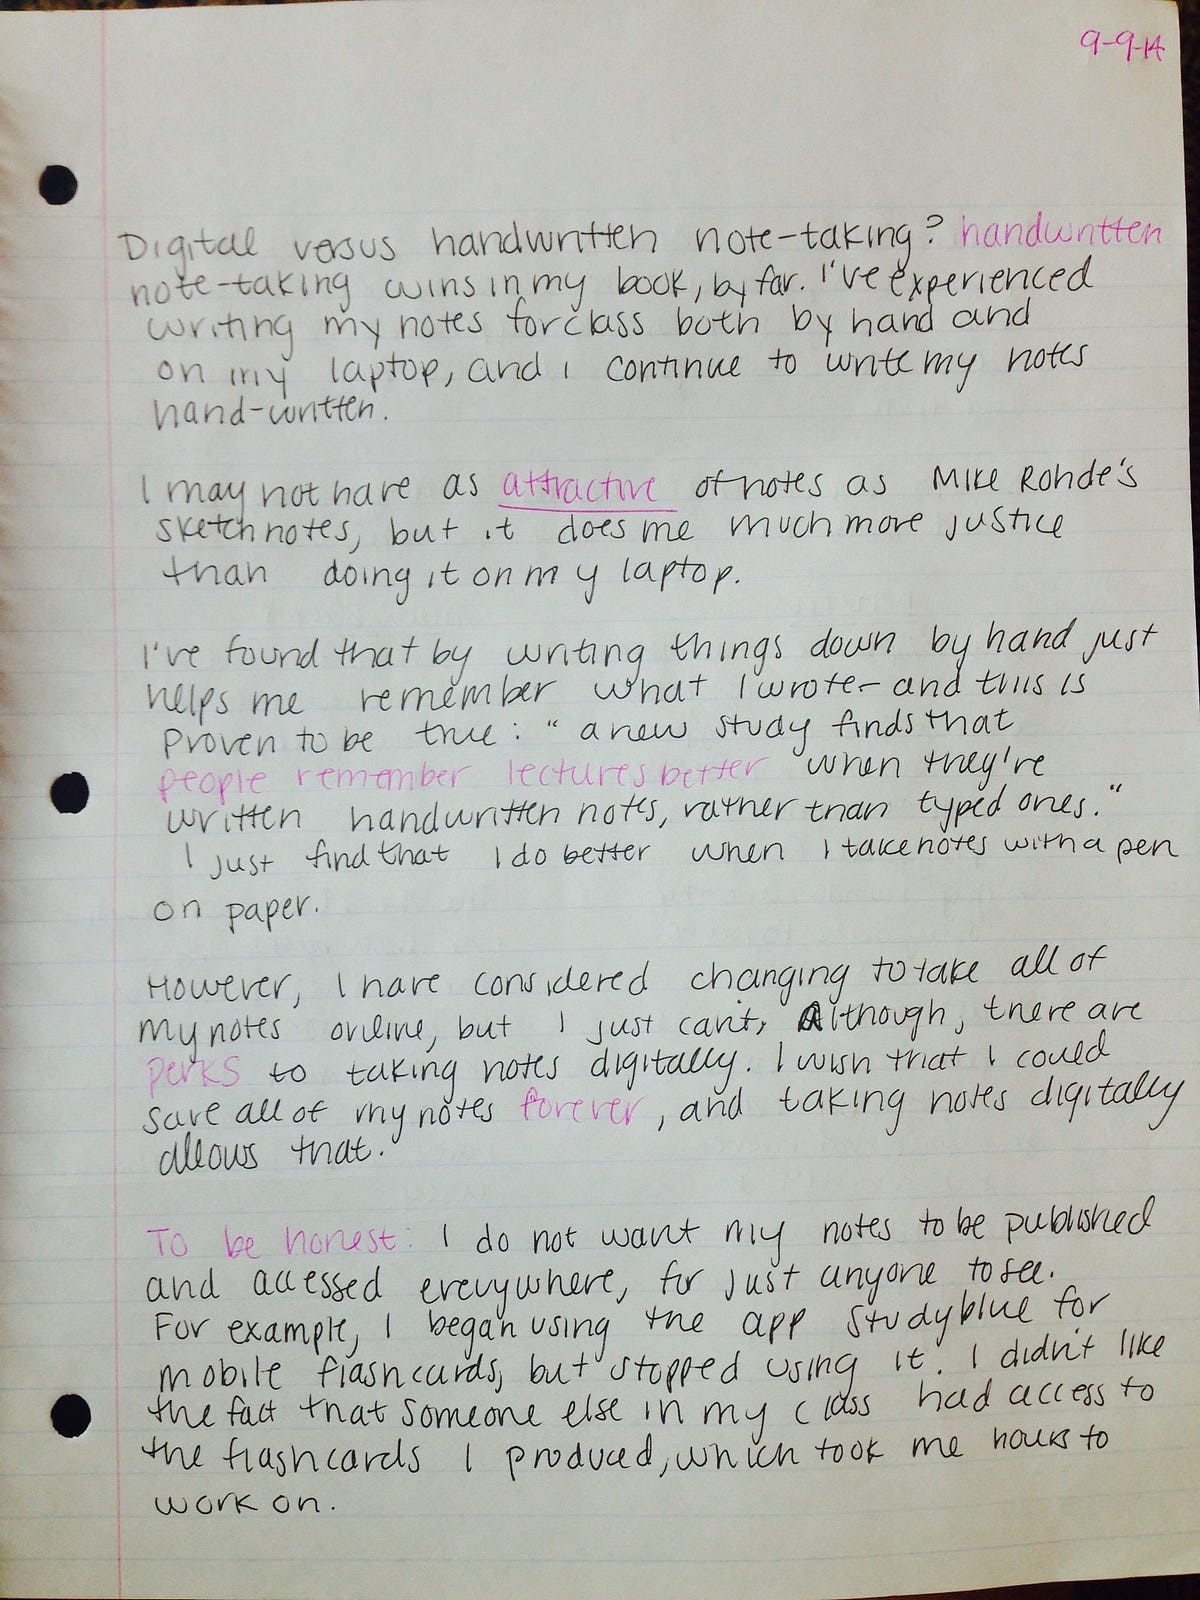 9-9-14
Digital versus handwritten note-taking? handwritten
note-taking wins in my book, by far. I've experienced
writing my notes for class both by hand and
on my laptop, and i continue to write my notes
hand-written.
I may not have as attractive of notes as Mike Rohde's
sketchnotes, but it does me much more justice
than doing it on my laptop.
I've found that by writing things down by hand just
helps me remember what I wrote - and this is
proven to be true: "a new study finds that
people remember lectures better when they're
written handwritten notes, rather than typed ones."
I just find that I do better when I take notes with a pen
on paper.
However, I have considered changing to take all of
my notes online, but I just can't, Although, there are
perks to taking notes digitally. I wish that I could
save all of my notes forever, and taking notes digitally
allows that.
To be honest: I do not want my notes to be published
and accessed everywhere, for just anyone to see.
For example, I began using the app studyblue for
mobile flashcards, but stopped using it. I didn't like
the fact that someone else in my class had access to
the flashcards I produced, which took me hours to
work on.